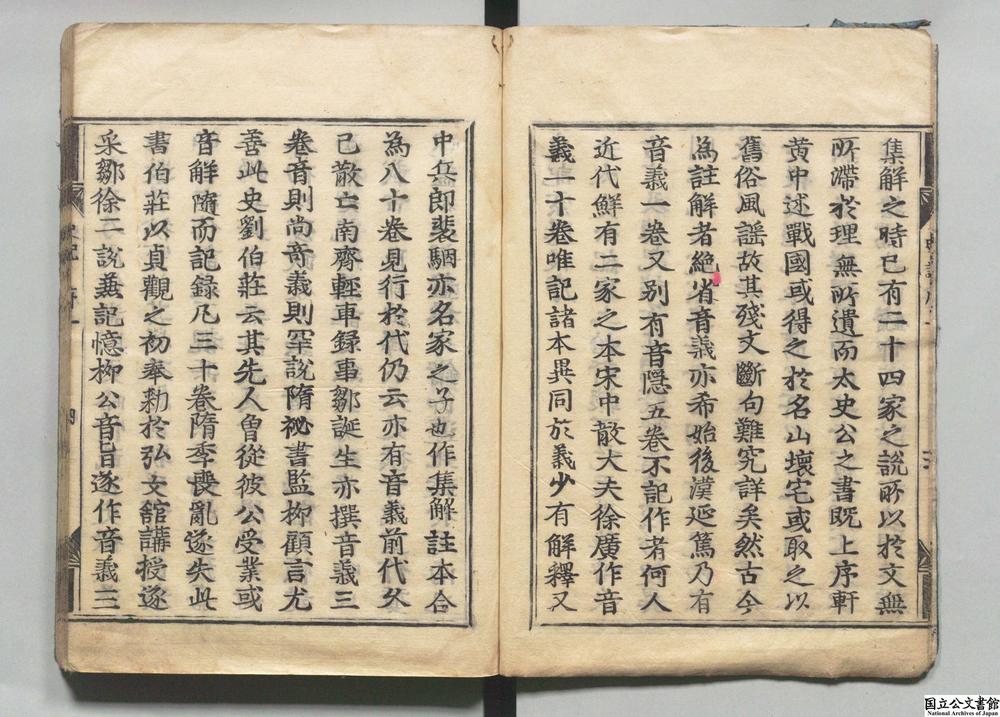 集解之時已有二十四家之說所以於文無
所滯於理無所遺而太史公之書既上序軒
黃中述戰國或得之於名山壞宅或取之以
舊俗風謠故其殘文斷句難究詳矣然古今
為註解者絶省音義亦希始後漢延篤乃有
音義一卷又別有音隱五卷不記作者何人
近代鮮有二家之本宋中散大夫徐廣作音
義一十卷唯記諸本異同於義少有解釋又
中兵郎裴駰亦名家之子也作集解註本合
為八十卷見行於代仍云亦有音義前代久
已散亡南齊輕車錄事鄒誕生亦撰音義三
卷音則尚奇義則罕說隋祕書監柳顧言尤
善此史劉伯莊云其先人曾從彼公受業或
音解隨而記録凡三十卷隋季喪亂遂失此
書伯莊以貞觀之初奉勑於弘文館講授遂
采鄒徐二說兼記憶柳公音旨遂作音義二
史記 序
国立公文書館
National Archives of Japan